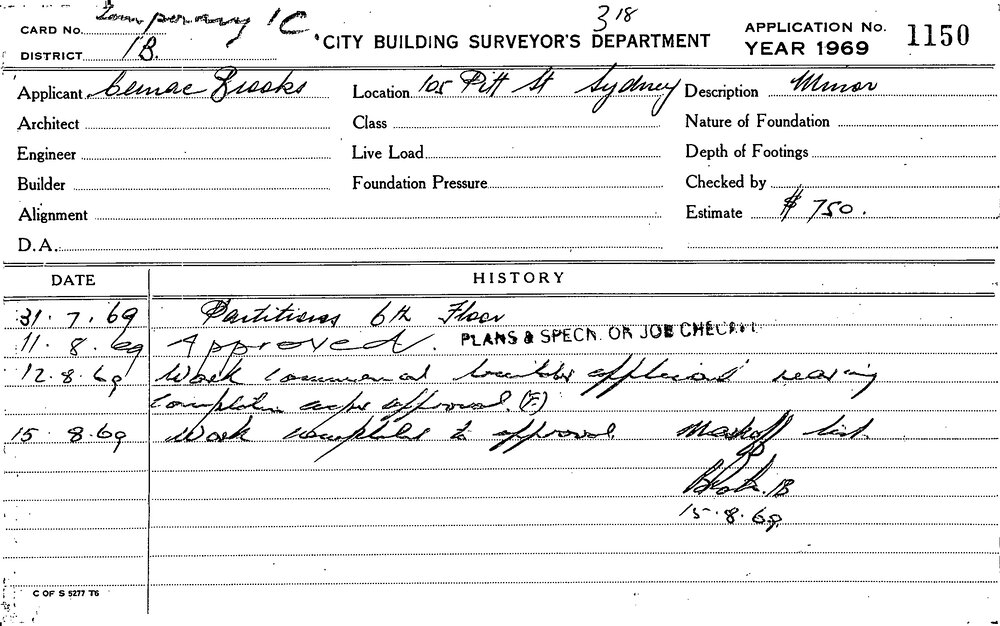 CARD No. Temporary 1C 3 18
DISTRICT 1B.
CITY BUILDING SURVEYOR'S DEPARTMENT
APPLICATION No. 1150
YEAR 1969
Applicant Cemac Brooks Location 105 Pitt St Sydney Description Minor
Architect Class Nature of Foundation
Engineer Live Load Depth of Footings
Builder Foundation Pressure Checked by
Alignment Estimate $ 750.
D.A.
DATE HISTORY
31.7.69 Partitions 6th Floor
11.8.69 Approved. PLANS & SPECN. ON JOB CHECKED
12.8.69 Work commenced builder applicant nearing
completion as per approval. (F.)
15.8.69 Work completed to approval Markoff list
1B
15.8.69
C OF S 5277 T6